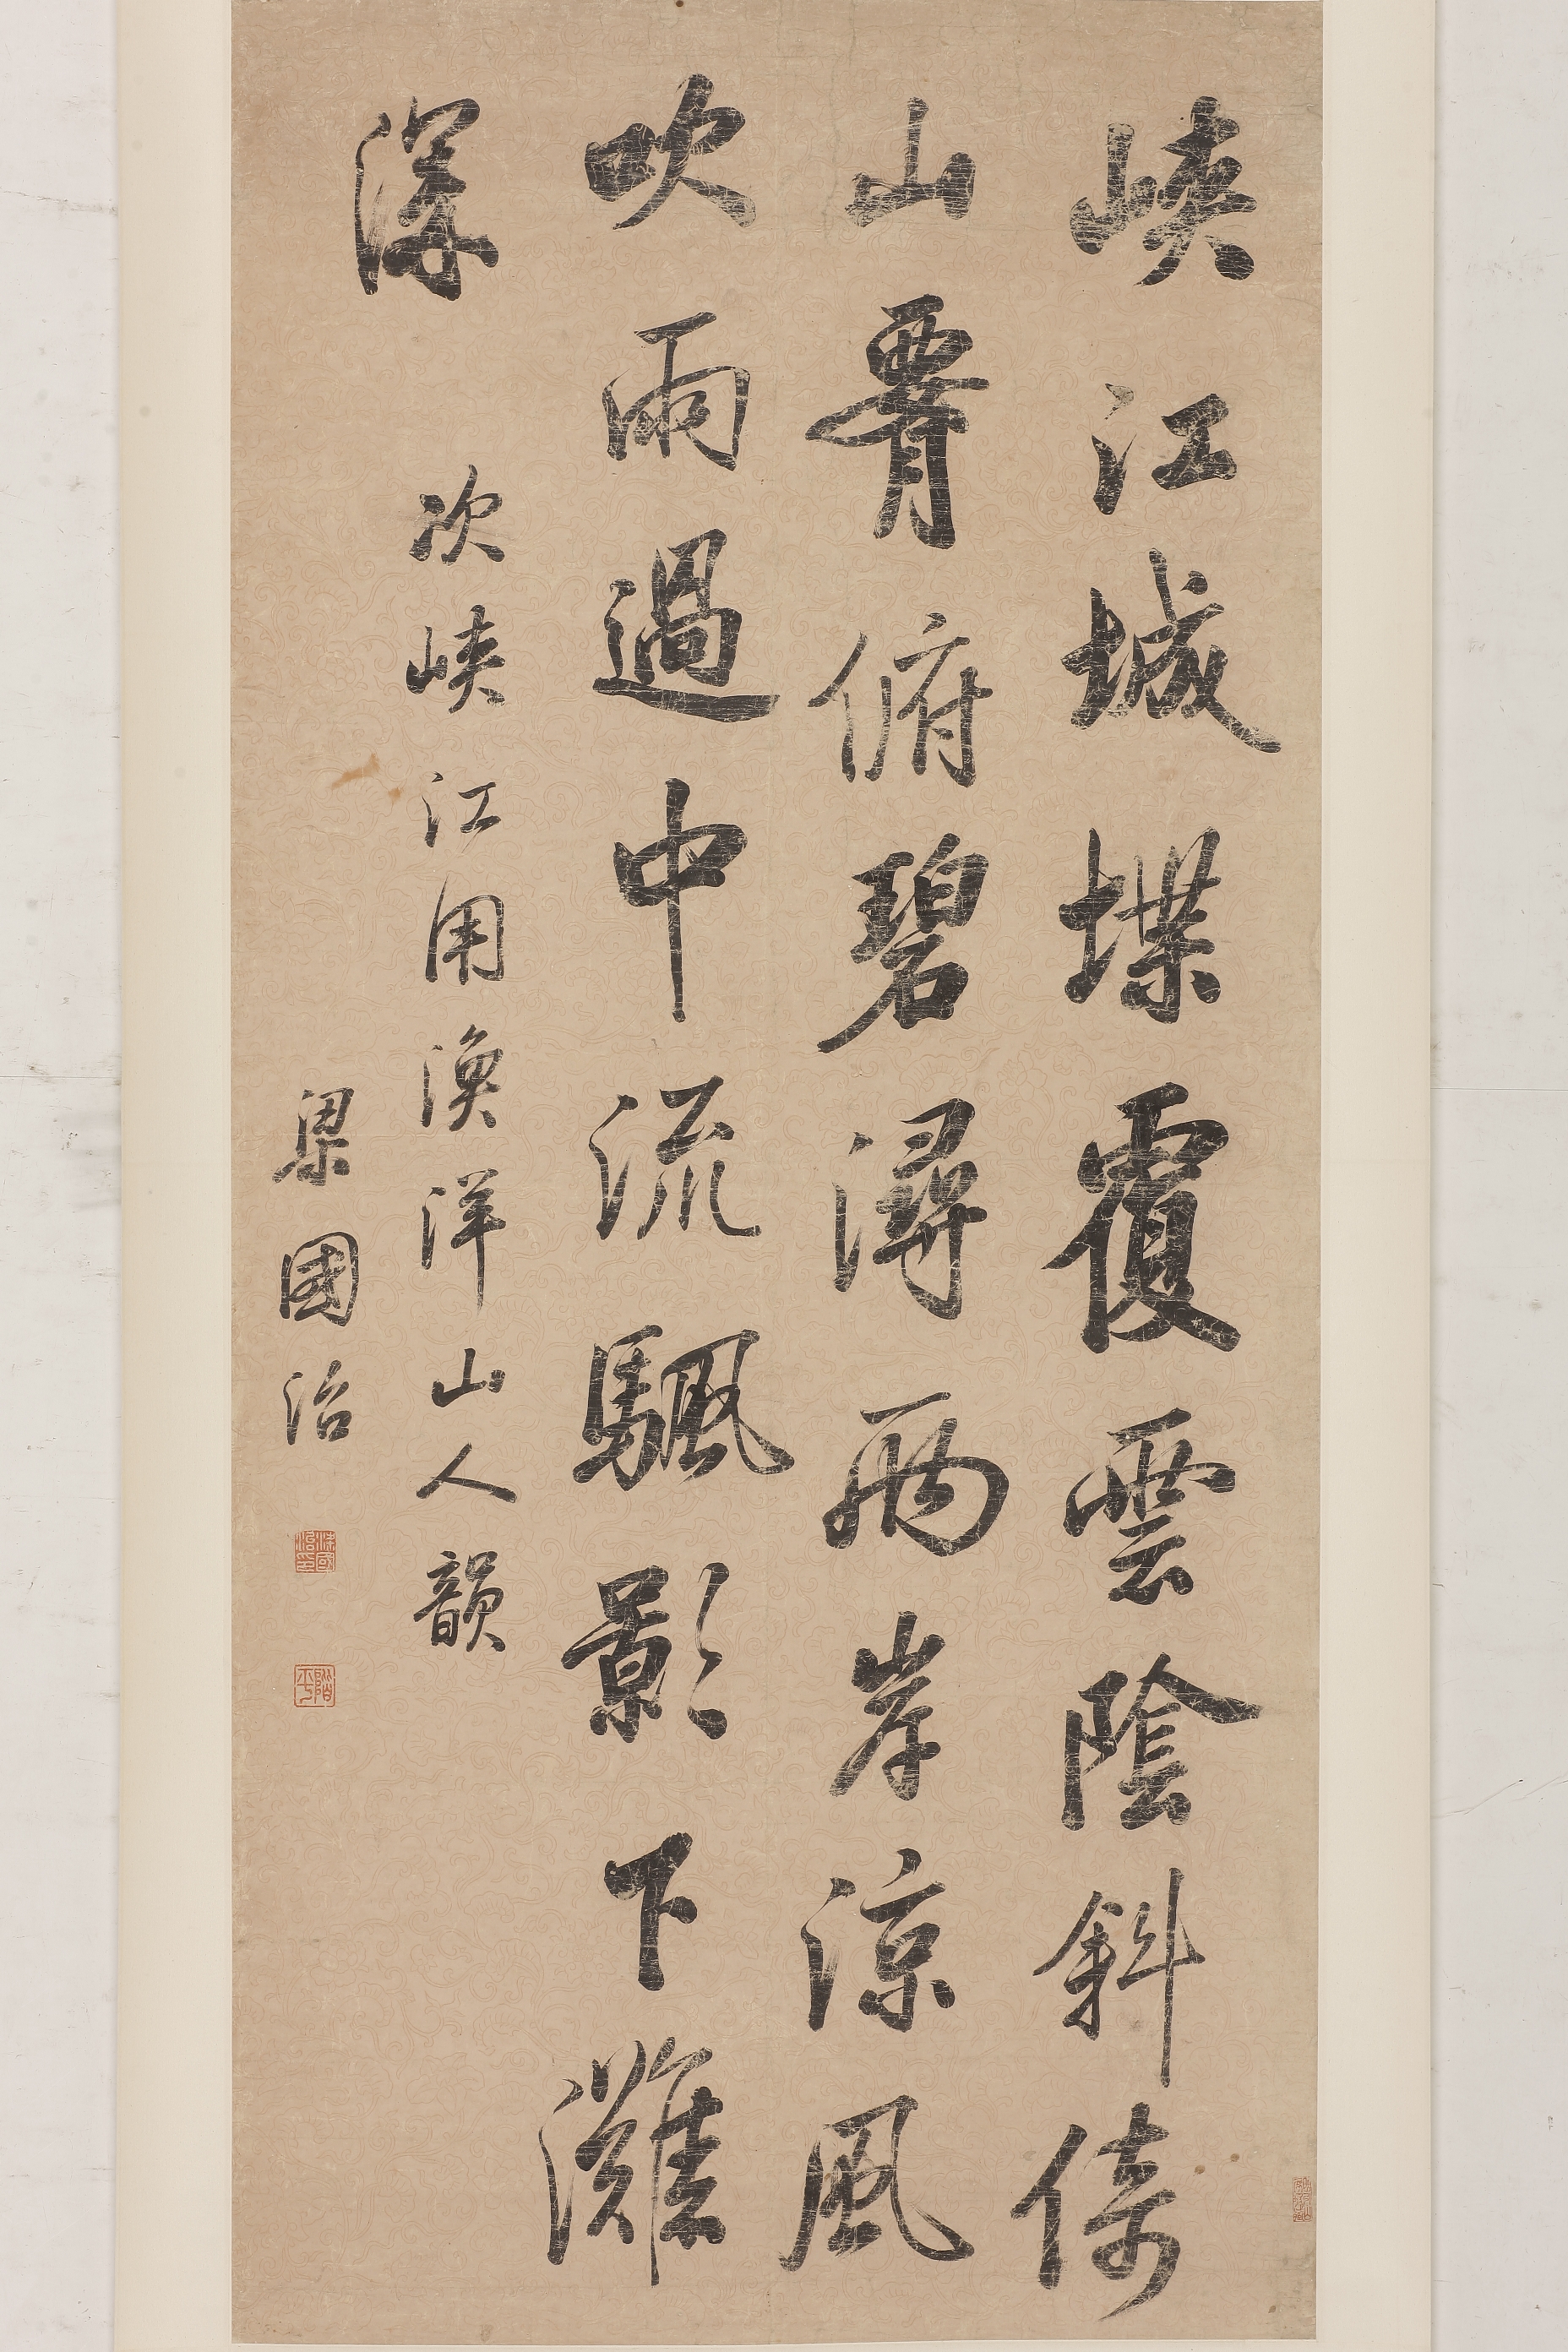 峽江城堞覆雲陰斜倚
山脊俯碧潯兩岸涼風
吹雨過中流颿影下灘
深
次峽江用漁洋山人韻
梁國治
梁國治印
階平